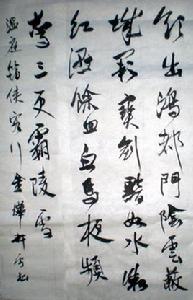 欲出鴻都門陰雲蔽
城闕寶劍黯如水微
紅濕餘血白馬夜頻
驚三更霸陵雪
温庭筠俠客行